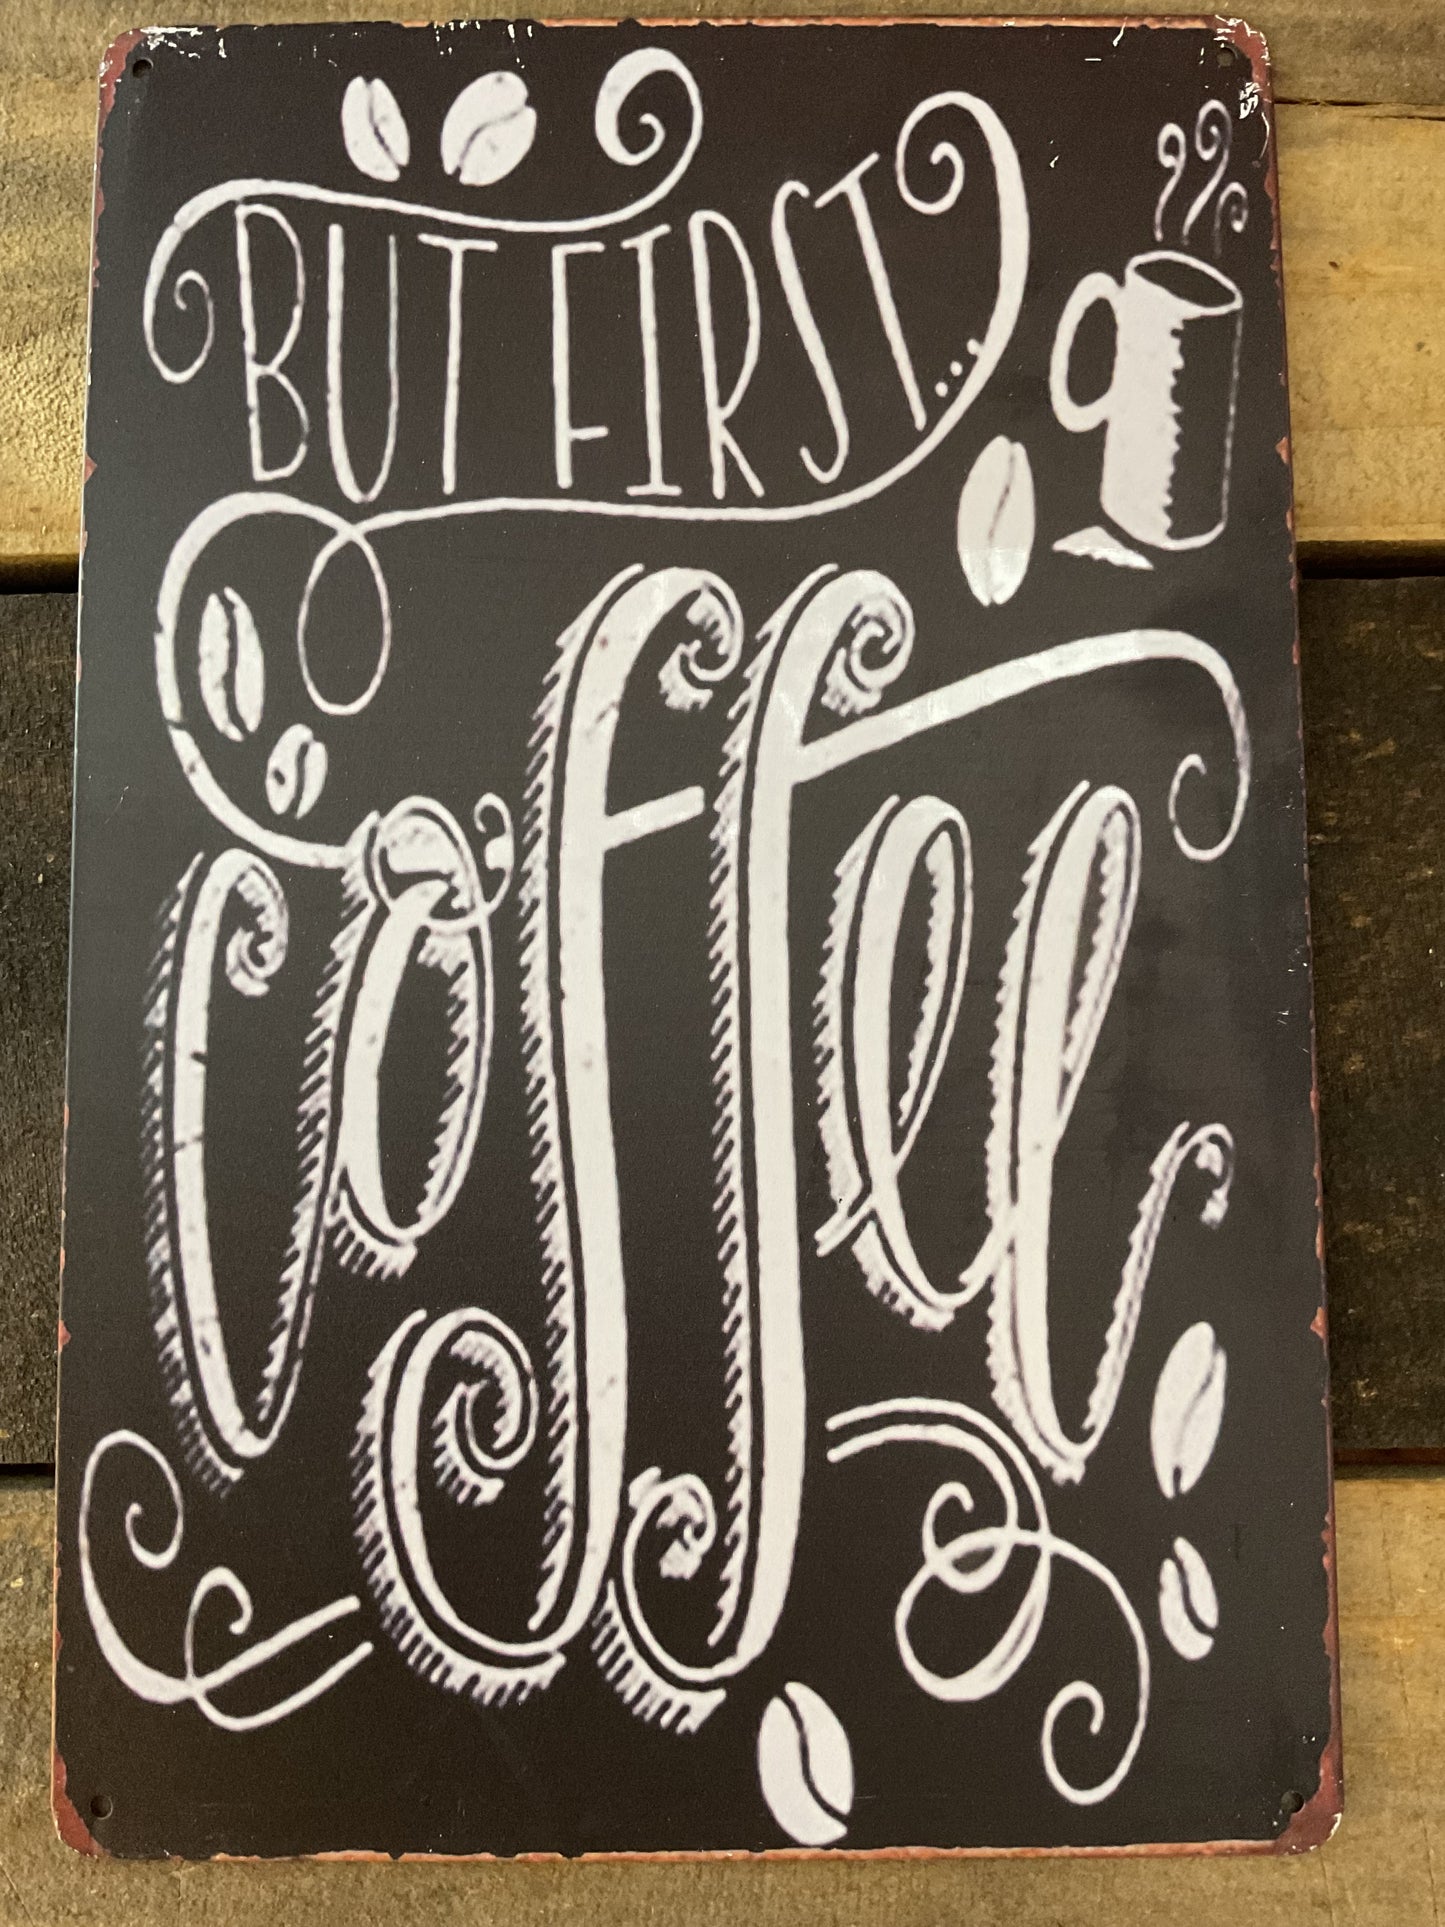 BUT FIRST...
coffee